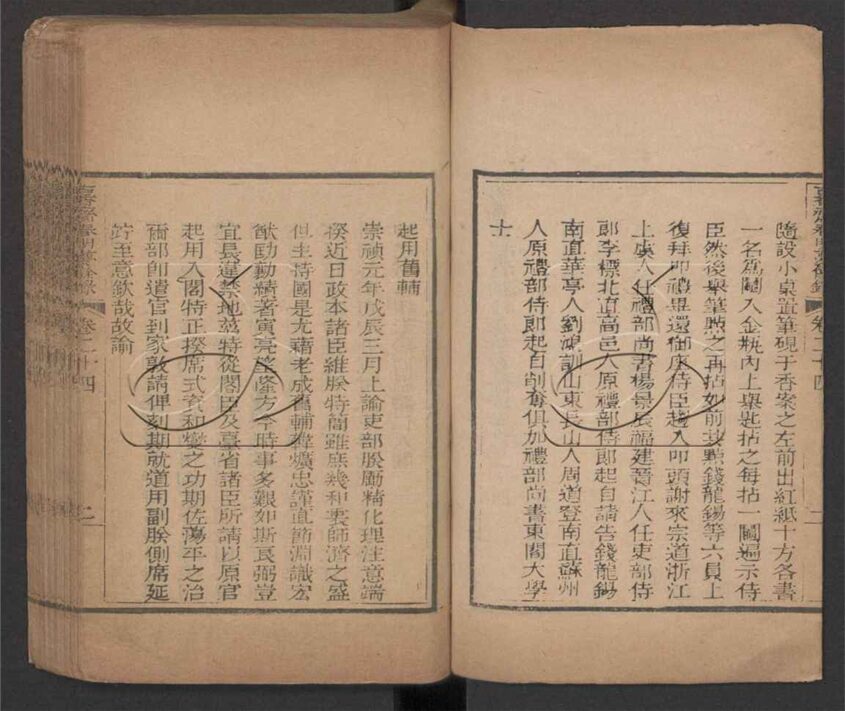 隨設小桌置筆硯于香案之左前出紅紙十方各書
一名爲鬮入金瓶內上舉匙拈之每拈一鬮遍示侍
臣然後舉筆點之再拈如前共點錢龍錫等六員上
復拜叩禮畢還御座侍臣趨入叩頭謝來宗道浙江
上虞人任禮部尚書楊景辰福建晉江人任吏部侍
郎李標北直高邑人原禮部侍郎起自請告錢龍錫
南直華亭人劉鴻訓山東長山人周道登南直蘇州
人原禮部侍郎起自削奪俱加禮部尚書東閣大學
士
起用舊輔
崇禎元年戊辰三月上諭吏部朕勵精化理注意端
揆近日政本諸臣維朕特簡雖庶幾和衷師濟之盛
但主持國是尤藉老成舊輔韓爌忠謹直節淵識宏
猷劻勷績著寅亮望隆方今時事多艱如斯良弼豈
宜長違禁地茲特從閣臣及臺省諸臣所請以原官
起用入閣特正揆席式資和燮之功期佐蕩平之治
爾部即遣官到家敦請俾刻期就道用副朕側席延
竚至意欽哉故諭
卷二十四
二